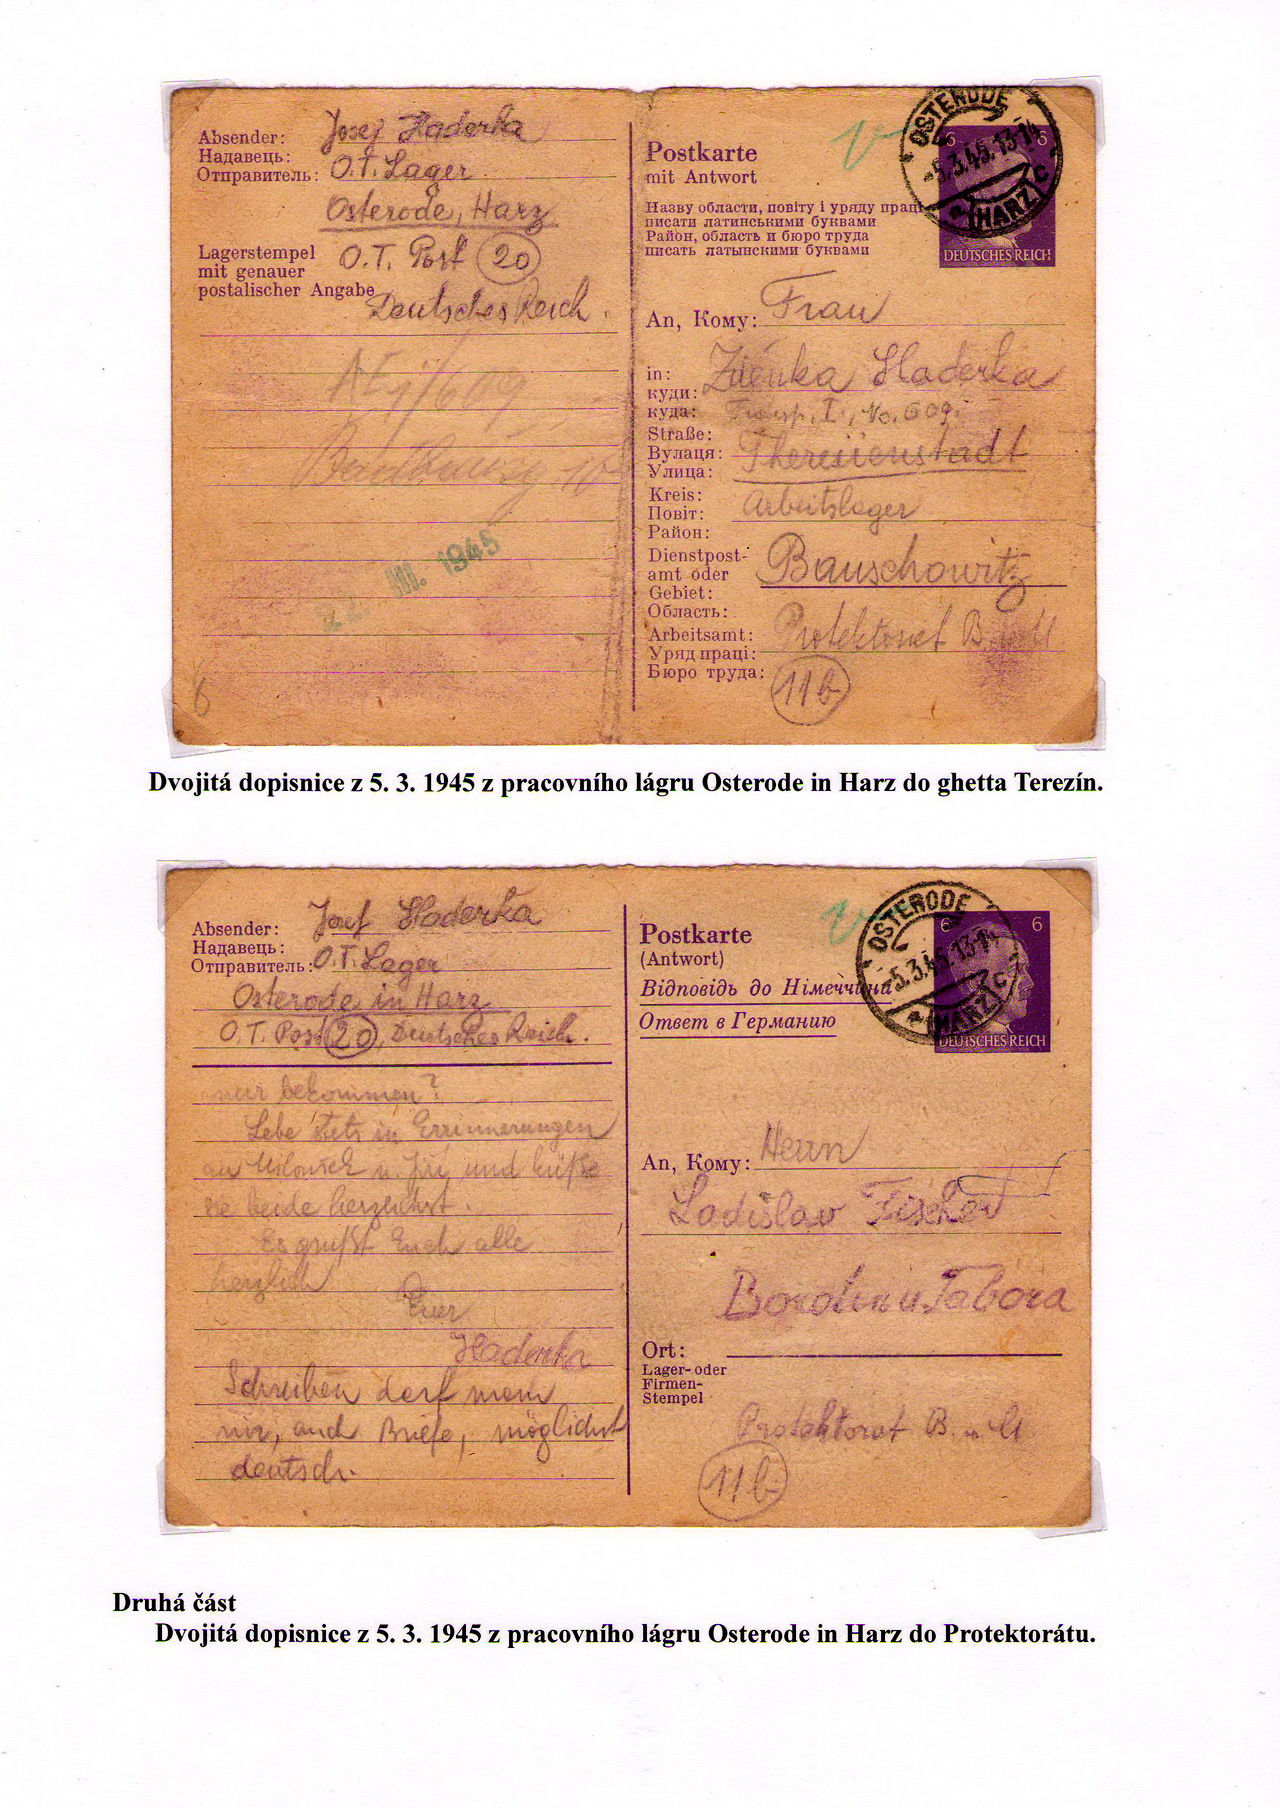 Absender: Josef Haderka
Надавець:
Отправитель: O.T. Lager
Osterode, Harz
Lagerstempel
mit genauer
postalischer Angabe
O.T. Post 20
Deutsches Reich.
22 III. 1945
6
Postkarte
mit Antwort
Назву области, повіту і уряду праці
писати латинськими буквами
Район, область и бюро труда
писать латынскими буквами
OSTERODE
-5.3.45.13-14
(HARZ) c
6 6
DEUTSCHES REICH
An, Кому: Frau
in: Zdenka Haderka
куди:
куда: Transp. I, No. 609.
Straße:
Вулаця: Theresienstadt
Улица:
Kreis: Arbeitslager
Повіт:
Район:
Dienstpost-
amt oder Bauschowitz
Gebiet:
Область:
Arbeitsamt: Protektorat B. u. M
Уряд праці:
Бюро труда: 11b
Dvojitá dopisnice z 5. 3. 1945 z pracovního lágru Osterode in Harz do ghetta Terezín.
Absender: Josef Haderka
Надавець:
Отправитель: O.T. Lager
Osterode in Harz
O.T. Post 20, Deutsches Reich.
nur bekommen?
Lebe stets in Errinnerungen
an u. Jiři und küße
sie beide herzlichst.
Es grüßt Euch alle
herzlich
Euer
Haderka
Schreiben darf man
mir, auch Briefe, möglichst
deutsch.
Postkarte
(Antwort)
Відповідь до Німеччини
Ответ в Германию
OSTERODE
-5.3.45.13-14
(HARZ) c
6 6
DEUTSCHES REICH
An, Кому: Herrn
Ladislav Fischer
Borotin u Tabora
Ort:
Lager- oder
Firmen-
Stempel
Protektorat B. u. M
11b
Druhá část
Dvojitá dopisnice z 5. 3. 1945 z pracovního lágru Osterode in Harz do Protektorátu.